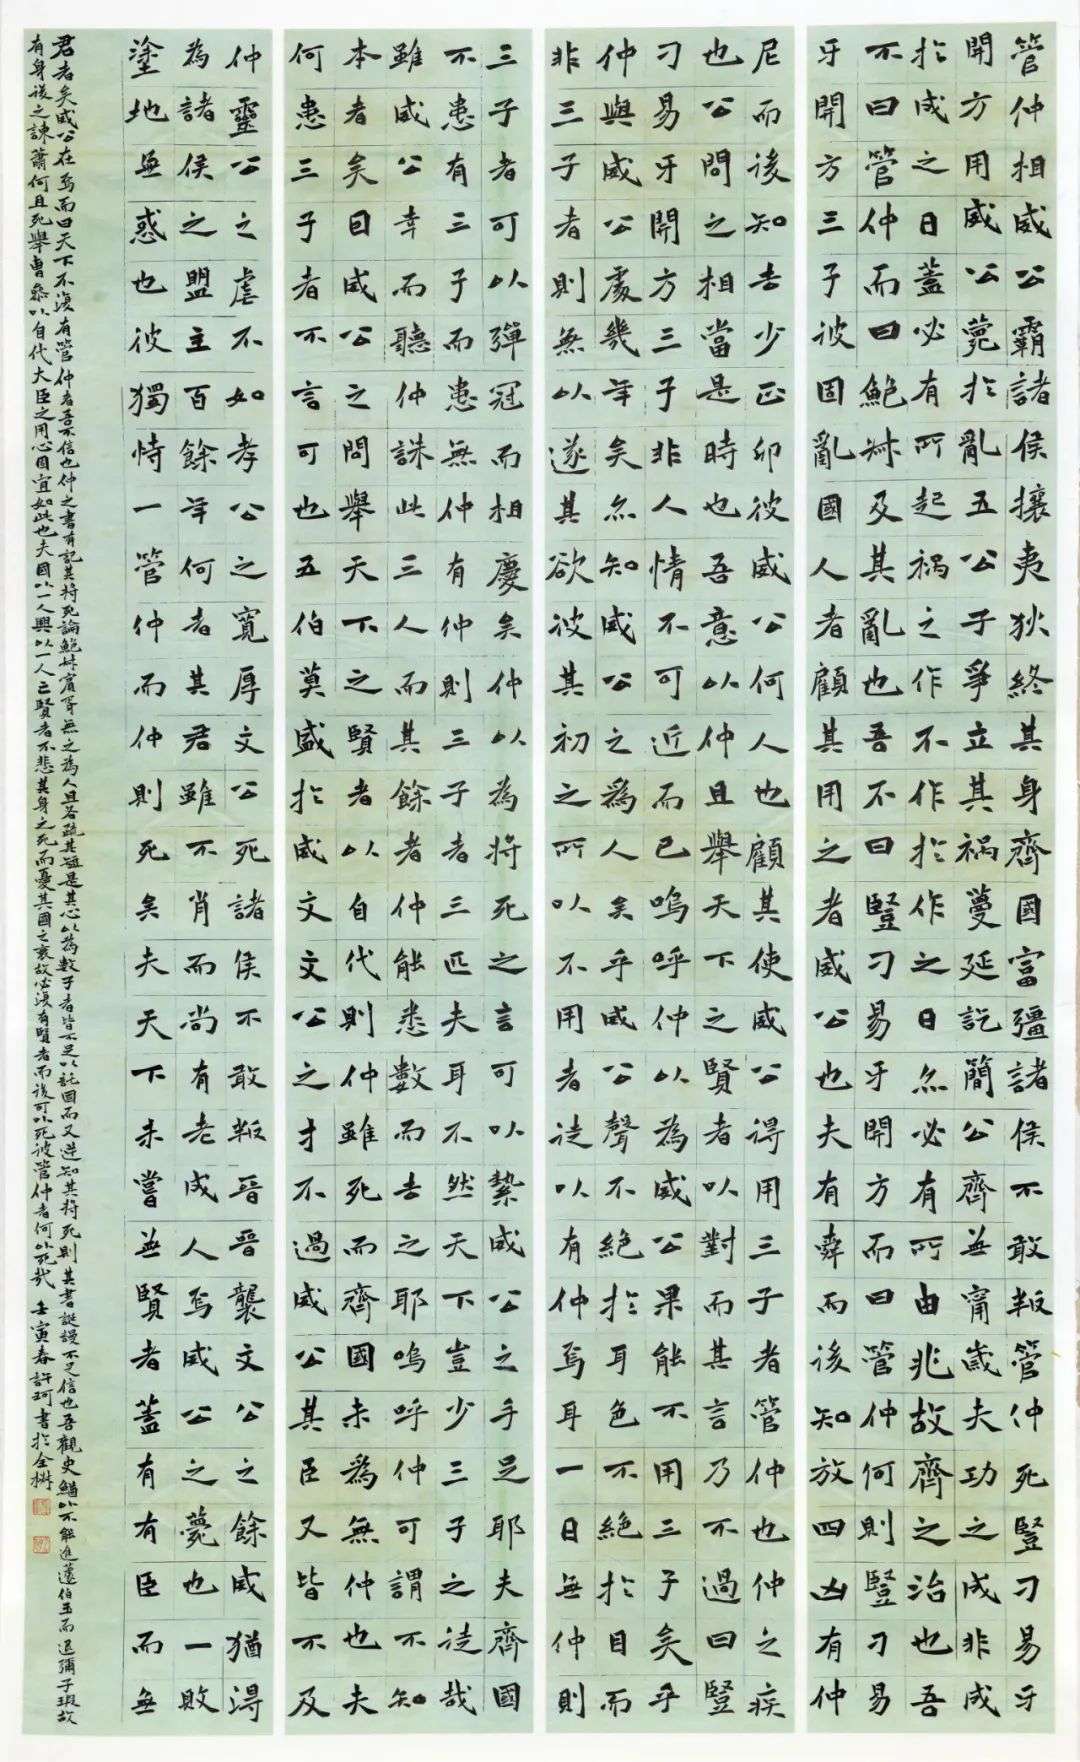 管仲相威公霸諸侯攘夷狄終其身齊國富彊諸侯不敢叛管仲死豎刁易牙
開方用威公薨於亂五公子爭立其禍蔓延訖簡公齊無甯歲夫功之成非成
於成之日蓋必有所起禍之作不作於作之日亦必有所由兆故齊之治也吾
不曰管仲而曰鮑叔及其亂也吾不曰豎刁易牙開方而曰管仲何則豎刁易
牙開方三子彼固亂國人者顧其用之者威公也夫有舜而後知放四凶有仲
尼而後知去少正卯彼威公何人也顧其使威公得用三子者管仲也仲之疾
也公問之相當是時也吾意以仲且舉天下之賢者以對而其言乃不過曰豎
刁易牙開方三子非人情不可近而已嗚呼仲以為威公果能不用三子矣乎
仲與威公處幾年矣亦知威公之為人矣乎威公聲不絕於耳色不絕於目而
非三子者則無以遂其欲彼其初之所以不用者徒以有仲焉耳一日無仲則
三子者可以彈冠而相慶矣仲以為將死之言可以縶威公之手足耶夫齊國
不患有三子而患無仲有仲則三子者三匹夫耳不然天下豈少三子之徒哉
雖威公幸而聽仲誅此三人而其餘者仲能悉數而去之耶嗚呼仲可謂不知
本者矣因威公之問舉天下之賢者以自代則仲雖死而齊國未為無仲也夫
何患三子者不言可也五伯莫盛於威文文公之才不過威公其臣又皆不及
仲靈公之虐不如孝公之寬厚文公死諸侯不敢叛晉晉襲文公之餘威猶得
為諸侯之盟主百餘年何者其君雖不肖而尚有老成人焉威公之薨也一敗
塗地無惑也彼獨恃一管仲而仲則死矣夫天下未嘗無賢者蓋有有臣而無
君者矣威公在焉而曰天下不復有管仲者吾不信也仲之書有記其將死論鮑叔賓胥無之為人且各疏其短是其心以為數子者皆不足以託國而又逆知其將死則其書誕謾不足信也吾觀史鰌以不能進蘧伯玉而退彌子瑕故
有身後之諫蕭何且死舉曹參以自代大臣之用心固宜如此也夫國以一人興以一人亡賢者不悲其身之死而憂其國之衰故必復有賢者而後可以死彼管仲者何以死哉 壬寅春許珂書於全椒